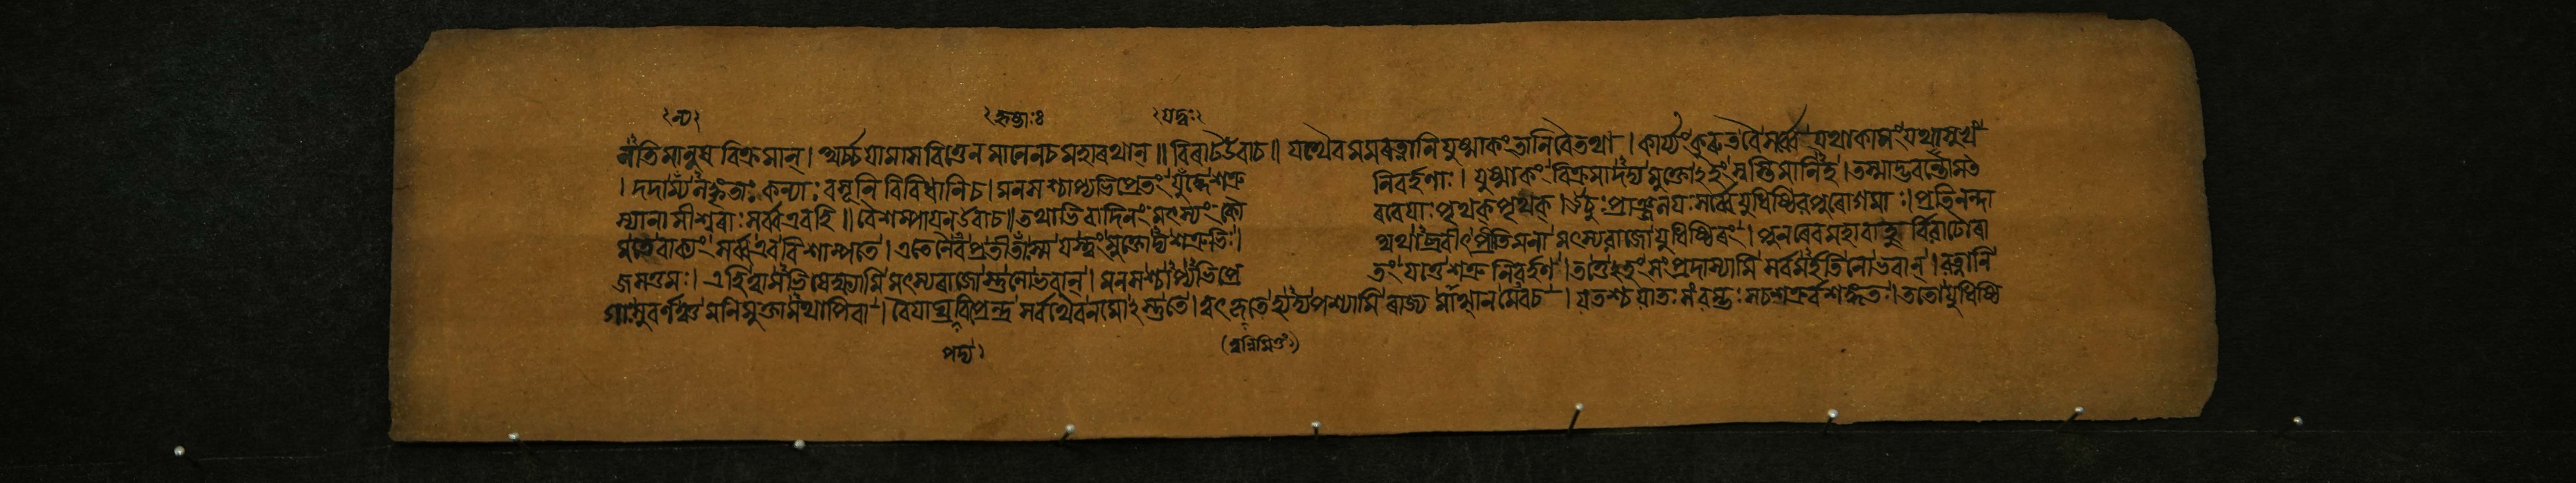 নতিমানুষ বিক্রমান্। অর্চ্চয়ামাস বিত্তেন মানেনচ মহাৰথান্॥ বিৰাট উবাচ॥ যথৈব মমৰত্নানি যুষ্মাকং তানি বৈ তথা। কার্য্যং কুৰুত বৈ সর্ব্বে যথাকামং যথাসুখং
। দদাম্যলঙ্কৃতাঃ কন্যাঃ বসূনি বিবিধানিচ। মনসশ্চাপ্যভিপ্রেতং যুদ্ধে শত্রু নিবর্হণাঃ। যুষ্মাকং বিক্রমাদদ্য মুক্তোঽহং স্বস্তিমানিহ। তস্মাদ্ভবন্তো মত
স্যানামীশ্বৰাঃ সর্ব্ব এবহি॥ বৈশম্পায়ন উবাচ॥ তথাভিবাদিনং মৎস্যং কৌ ৰবেয়াঃ পৃথক্ পৃথক্। ঊচুঃ প্রাঞ্জলয়ঃ সর্ব্বে যুধিষ্ঠিৰপুৰোগমাঃ। প্রতিনন্দা
মতে বাক্যং সর্ব্ব এব বিশাম্পতে। এতেনৈব প্রতীতাঃস্ম যত্ত্বং মুক্তোদ্য শত্রুভিঃ। অথাব্রবীৎ প্রীতিমনা মৎস্যৰাজো যুধিষ্ঠিৰং। পুনৰেব মহাবাহু র্বিৰাটোৰা
জসত্তমঃ। এহি ত্বামভিষেক্ষ্যামি মৎস্যৰাজোস্তুনোভবান্। মনসশ্চাপ্যভিপ্রে তং যত্তে শত্রুনিবর্হণ। তত্তেহং সংপ্রদাস্যামি সর্বমর্হতিনোভবান্। ৰত্নানি
গাঃ সুবর্ণঞ্চ মনিমুক্তামথাপিবা। বৈয়াঘ্র বিপ্রেন্দ্র সর্বথৈব নমোঽস্তুতে। ত্বৎকৃতে হ্যদ্য পশ্যামি ৰাজ্যমাত্মানমেবচ। যতশ্চ যাতঃ সংৰম্ভঃ সচ শত্রুর্বশঙ্গতঃ। ততো যুধিষ্ঠি
পদ্য